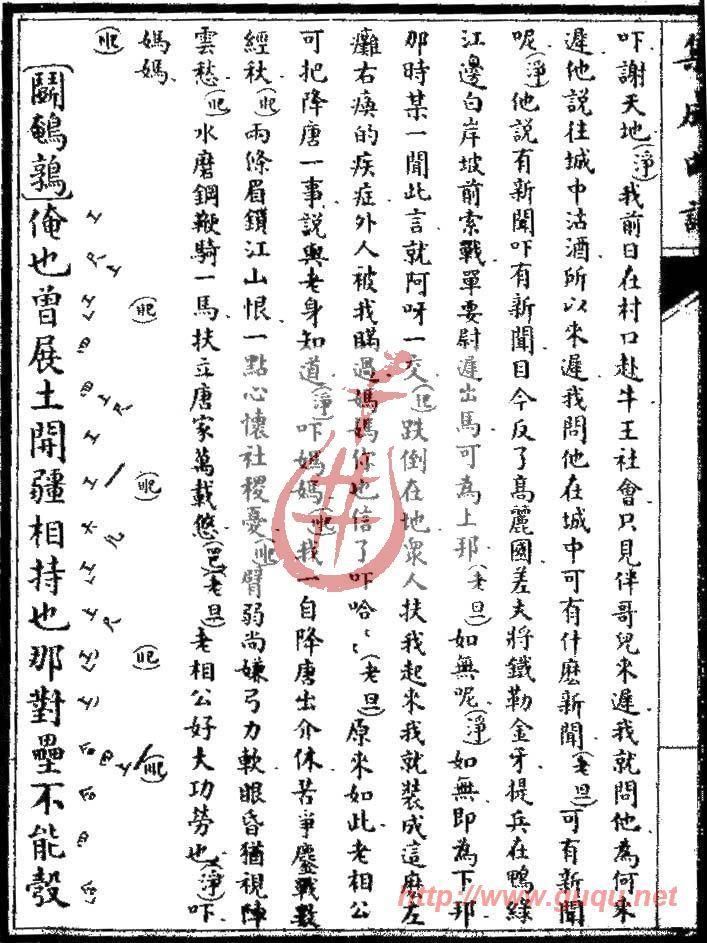 集成曲譜
吓謝天地(淨)我前日在村口赴牛王社會只見伴哥兒來遲我就問他為何來
遲他說往城中沽酒所以來遲我問他在城中可有什麽新聞(老旦)可有新聞
呢(淨)他說有新聞吓有新聞目今反了高麗國差夫將鐵勒金牙提兵在鴨綠
江邊白岸坡前索戰單要尉遲出馬可為上邦(老旦)如無呢(淨)如無即為下邦
那時某一聞此言就阿呀一交 跌倒在地眾人扶我起來我就裝成這麽左
癱右瘓的疾症外人被我瞞過媽媽你也信了吓哈〻(老旦)原來如此老相公
可把降唐一事說與老身知道(淨)吓媽媽 我一自降唐出介休苦爭鏖戰數
經秋 兩條眉鎖江山恨一點心懷社稷憂 臂弱尚嫌弓力軟眼昏猶視陣
雲愁 水磨鋼鞭騎一馬扶立唐家萬載悠 (老旦)老相公好大功勞也(淨)吓
媽媽
[鬬鵪鶉]俺也曾展土開疆相持也那對壘不能彀
http://www.guqu.net